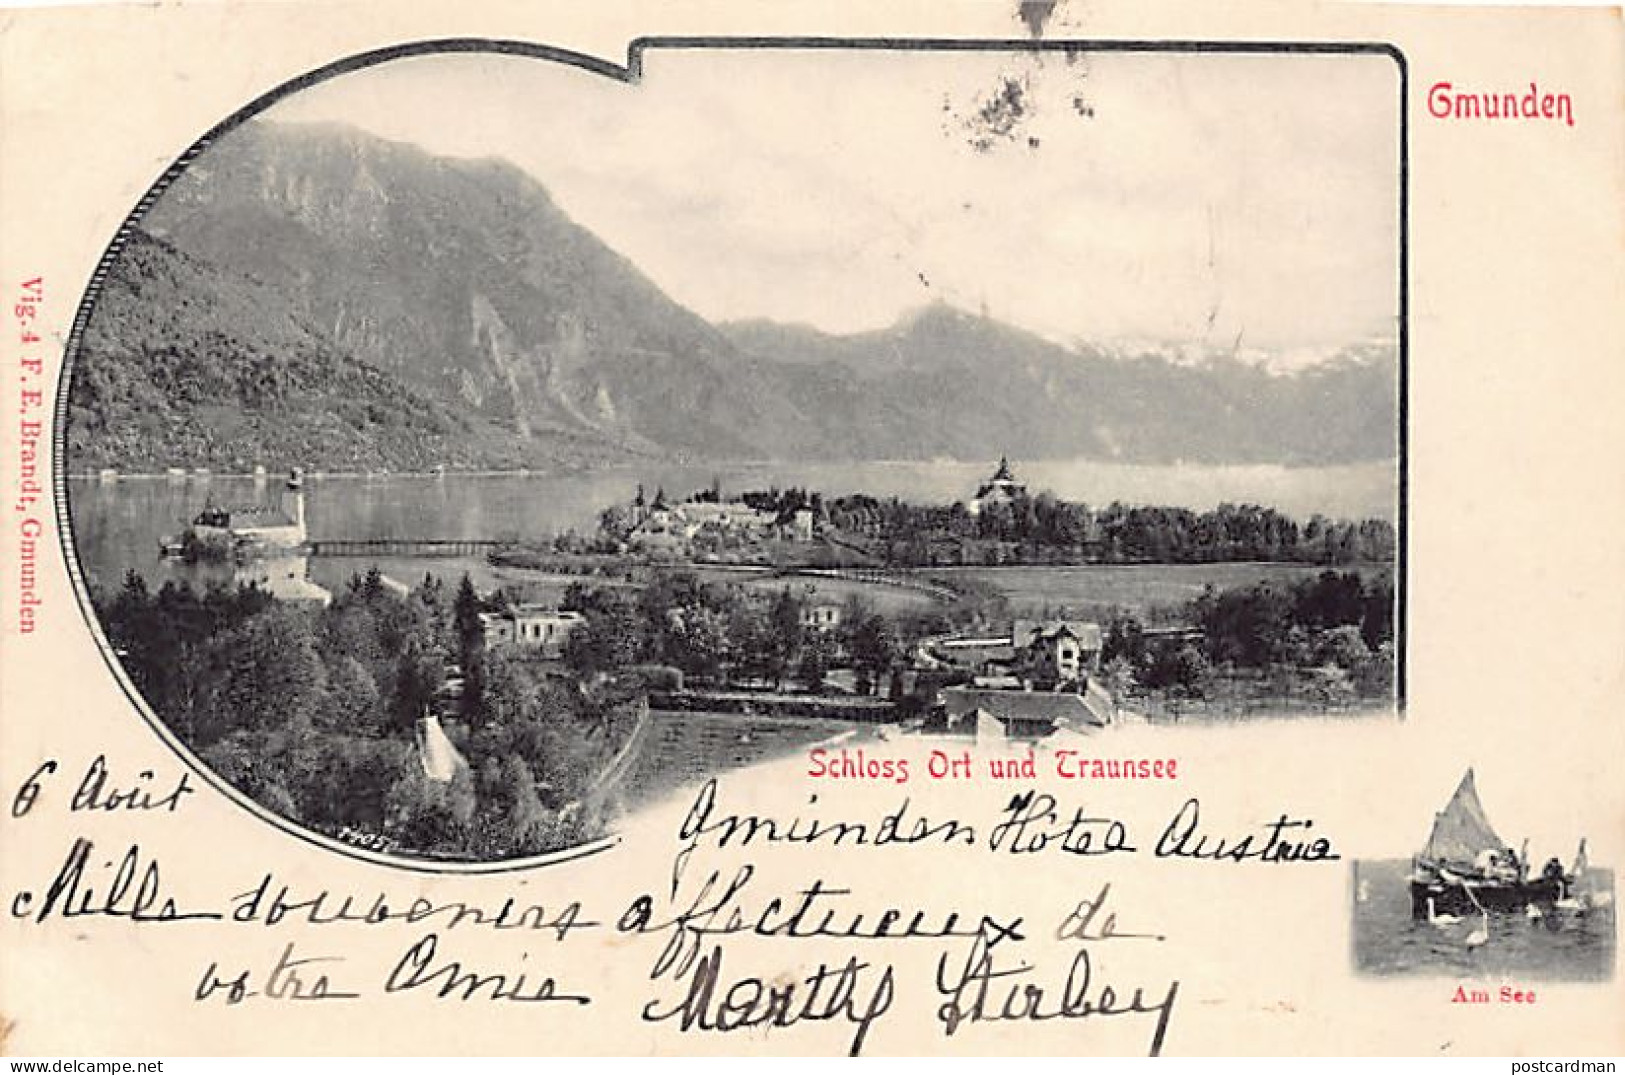 Gmunden
Vig. 4 F. E. Brandt, Gmunden
Schloss Ort und Traunsee
6 Août
Gmünden Hôtel Austria
Mille souvenirs affectueux de
votre Amie Marthe Stirbey
Am See
Delcampe.net
postcardman